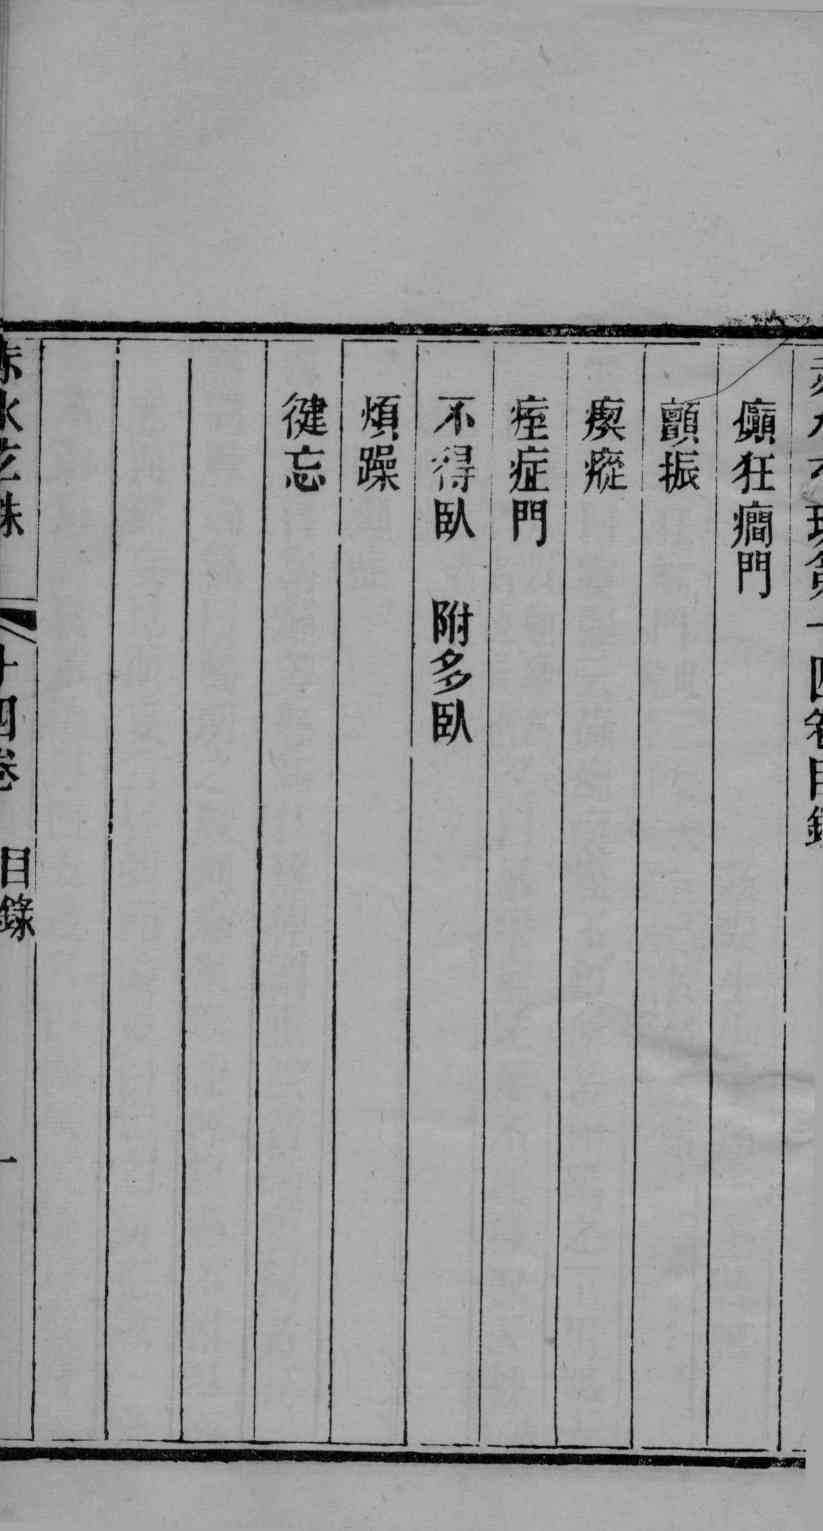 赤水玄珠第十四卷目錄
癲狂癇門
顫振
瘈瘲
痓症門
不得臥　附多臥
煩躁
健忘
赤水玄珠　十四卷　目錄　一